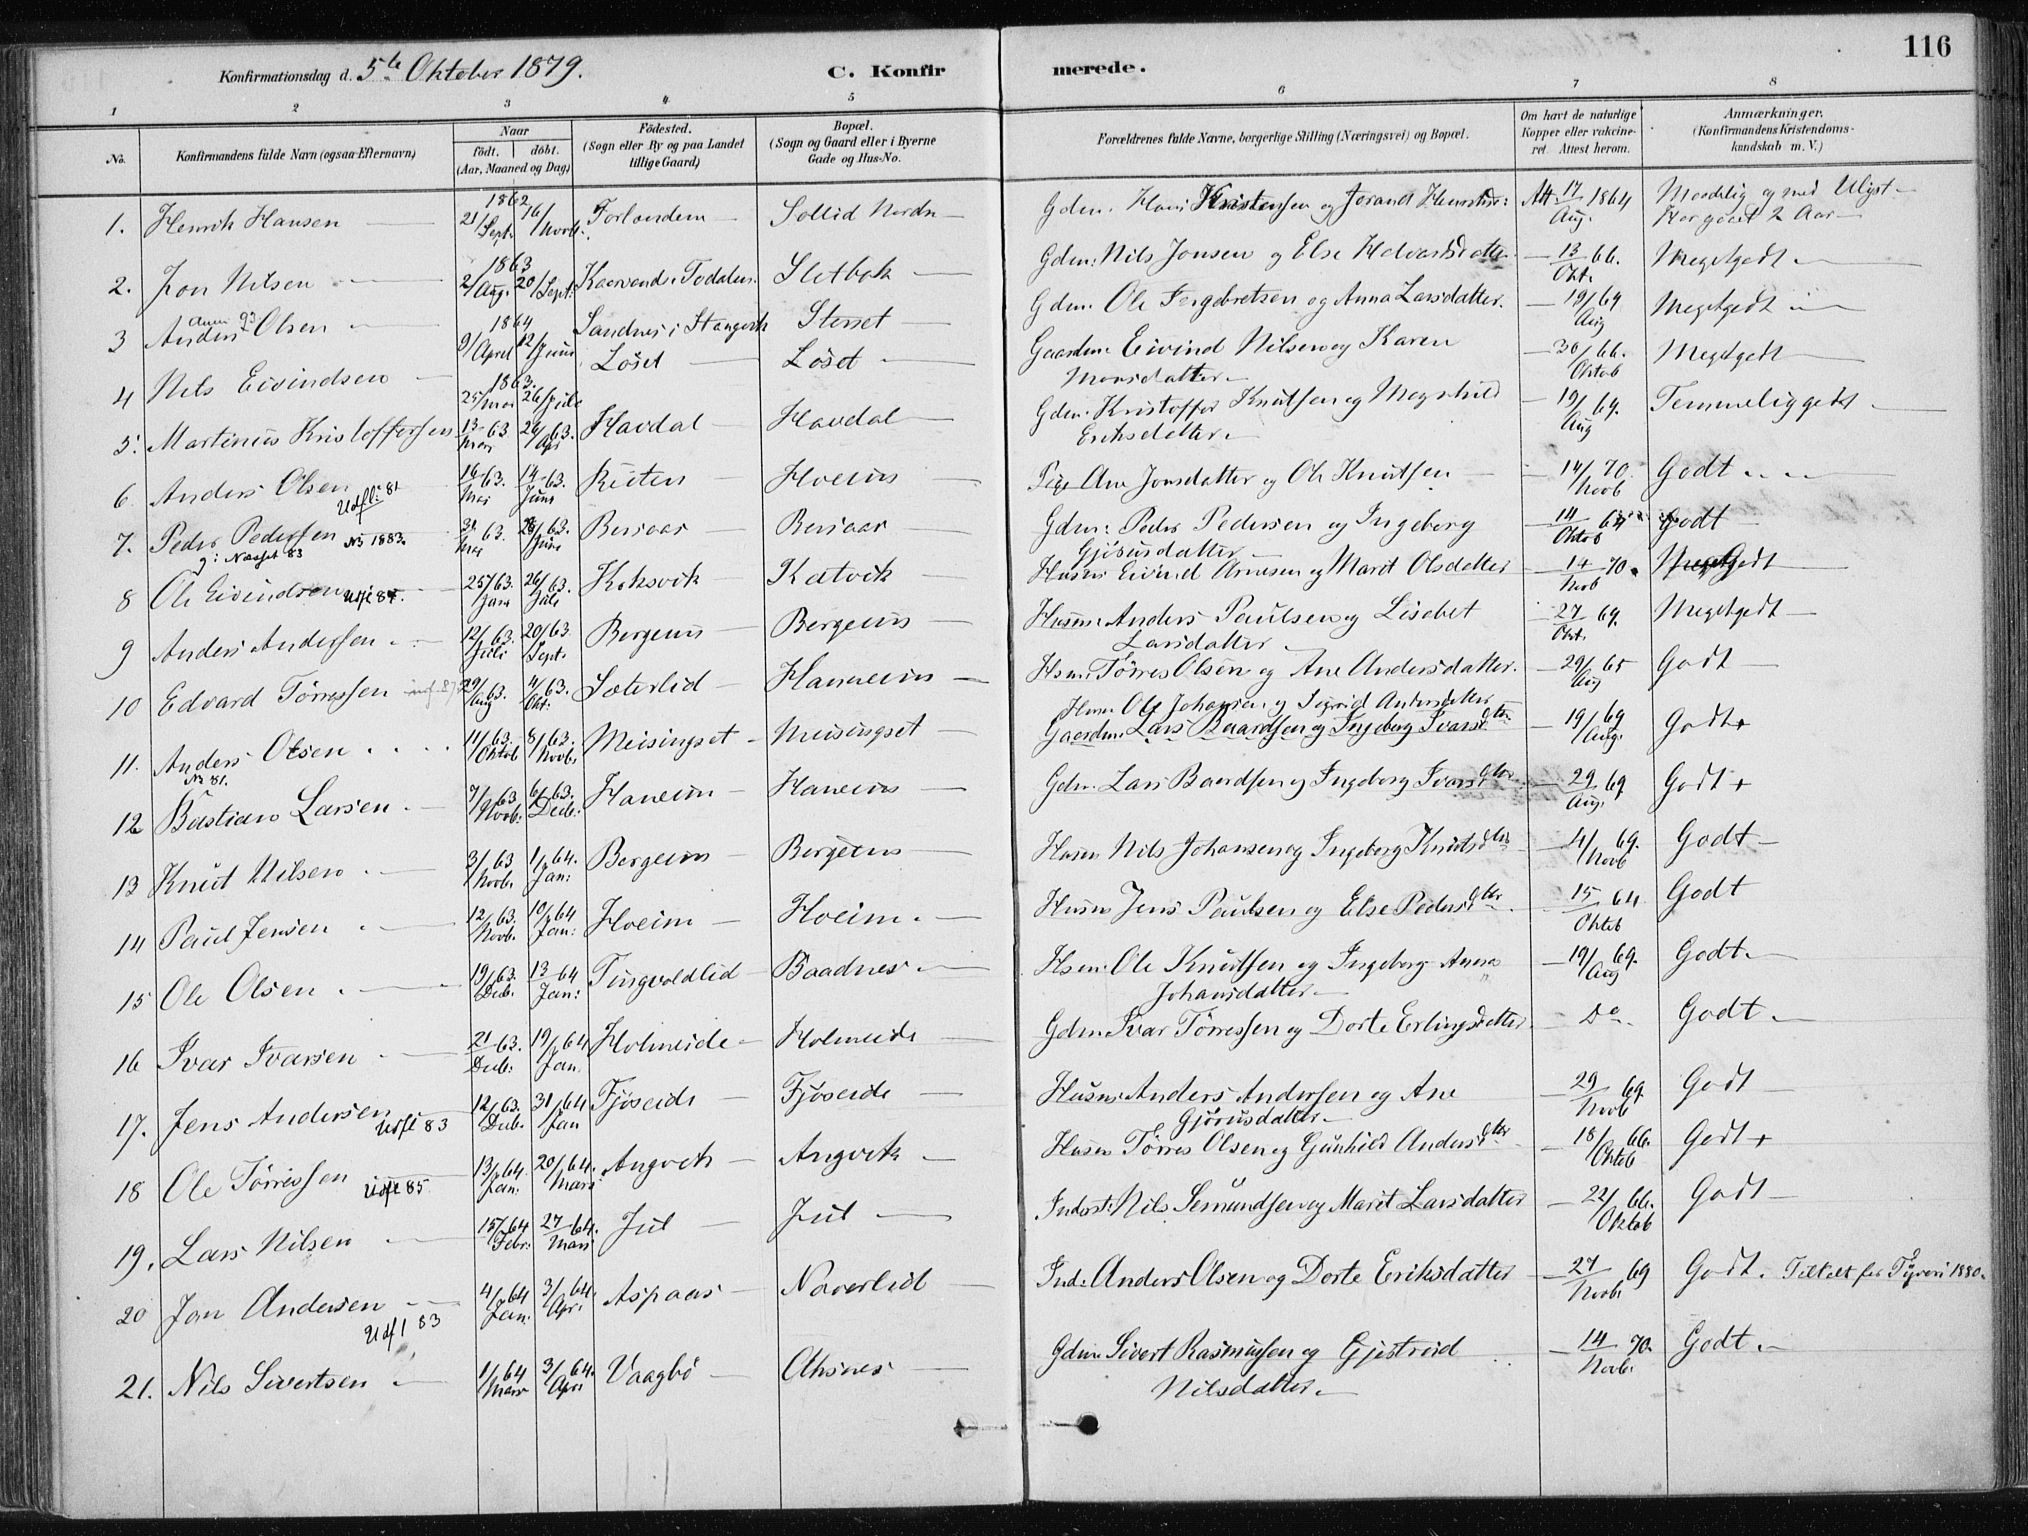 116
Konfirmationsdag d. 5te Oktober 1879. C. Konfirmerede.
1 2 3 4 5 6 7 8
No. Konfirmandens fulde Navn (ogsaa Efternavn) Naar født. døbt. (Aar, Maaned og Dag) Fødested. (Sogn eller By og paa Landet tillige Gaard) Bopæl. (Sogn og Gaard eller i Byerne Gade og Hus-No. Forældrenes fulde Navne, borgerlige Stilling (Næringsvei) og Bopæl. Om havt de naturlige Kopper eller vakcineret. Attest herom. Anmærkninger. (Konfirmandens Kristendomskundskab m. V.)
1. Henrik Hansen 1862 21/Sept. 16/Novb. Forlandem Sollid Nordre Gdm. Hans Kristensen og Joranot Att. 17/Aug. 1864 Maadelig og med Ulyst Har gaaet 2 Aar
2. Jon Nilsen 1863 2/Aug. 20/Sept. Kaarvand i Todalen Sletbak Gdm. Nils Jonsen og Else Halvorsdatter 13/Okt. 66. Megetgodt
3 Anders Olsen 1864 9/April 12/Juni Sandnes i Stangvik Sterset Gdm. Ole Ingebretsen og Anna Larsdatter. 19/Aug 69 Megetgodt
4 Nils Eivindsen 1863. 25/Mai 26/Juli Løset Løset Gaardm. Eivind Nilsen og Karen Monsdatter 30/Oktob 66. Megetgodt
5. Martinus Kristoffersen 13/Mar 63 26/Apr 63. Havdal Havdal Gdm. Kristoffer Knutsen og Magnhild Eriksdatter 19/Aug 69. Temmeliggodt
6 Anders Olsen Udfl. 81 16/Mai 63. 14/Juni 63. Reiten Hoeim Pige Ane Jonsdatter og Ole Knutsen 14/Novb 70. Godt
7. Peder Pedersen No 1883. g. i Næsset 83 31/Mai 63. 28/Juni 63. Bersaas Bersaas Gdm. Peder Pedersen og Ingeborg Gjørusdatter 14/Oktob 64 Godt
8 Ole Eivindsen Udfl 84. 25/Jan 63. 26/Juli 63. Koksvik Kokvik Husm. Eivind Arnesen og Marit Olsdatter 14/Novb 70. Godt
9 Anders Andersen 12/Juli 63. 20/Sept. 63 Bergeim Bergeim Husm. Anders Paulsen og Lisabet Larsdatter 27/Okt. 69. Megetgodt
10 Edvard Tørressen 29/Aug 63. 4/Okt. 63. Sæterlid Hanneim Hsm. Tørres Olsen og Ane Andersdatter. 29/Aug 65 Godt
Husm. Ole Johansen og Sigrid Andersdatter
11. Anders Olsen No 81. 11/Oktob 63. 8/Novb. 63. Meisingset Meisingset Gaardm. Lars Baardsen og Ingeborg Ivarsdtr. 19/Aug. 69 Godt+
12 Bastian Larsen 7/Novb. 63 6/Decb. 63. Haneim Haneim Gdm. Lars Baardsen og Ingeborg Ivarsdtr 29/Aug. 69 Godt+
13 Knut Nilsen 3/Novb. 63 1/Jan. 64. Bergeim Bergeim Husm Nils Johansen og Ingeborg Knutsdtr 4/Novb 69. Godt
14 Paul Jensen 12/Novb. 63. 10/Jan. 64 Hoeim Hoeim Husm Jens Paulsen og Else Pedersdtr. 15/Oktob 64 Godt
15 Ole Olsen 19/Decb. 63. 13/Jan. 64 Tingvoldlid Baadnes Hsm. Ole Knutsen og Ingeborg Anna Johansdatter 19/Aug 69. Godt
16 Ivar Ivarsen 21/Decb. 63. 19/Jan. 64 Holmeide Holmeide Gdm. Ivar Tørressen og Dorte Erlingsdatter. Do Godt
17. Jens Andersen Udfl 83 12/Decb. 63. 31/Jan 64 Fjøseide Fjøseide Husm. Anders Andersen og Ane Gjørusdatter 29/Novb 69. Godt
18 Ole Tørressen Udfl 85. 13/Jan. 64. 20/Mars 64. Angvik Angvik Husm Tørres Olsen og Gunhild Andersdtr 18/Oktob 66. Godt+
19. Lars Nilsen 15/Febr. 64 27/Mars 64. Jul Jul Inderst. Nils Semundsen og Marit Larsdatter 22/Oktob 66. Godt
20 Jon Andersen Udfl 83 4/Jan. 64 3/Apri 64. Aspaas Naverlid Ind. Anders Olsen og Dorte Eriksdatter 27/Novb. 69 Godt. Tiltalt for Tyveri 1880.
21. Nils Sivertsen 1/Mars 64 3/Apri 64. Vaagbø Oksnes Gdm. Sivert Rasmusen og Gjertrud Nilsdatter 14/Novb. 70. Godt.